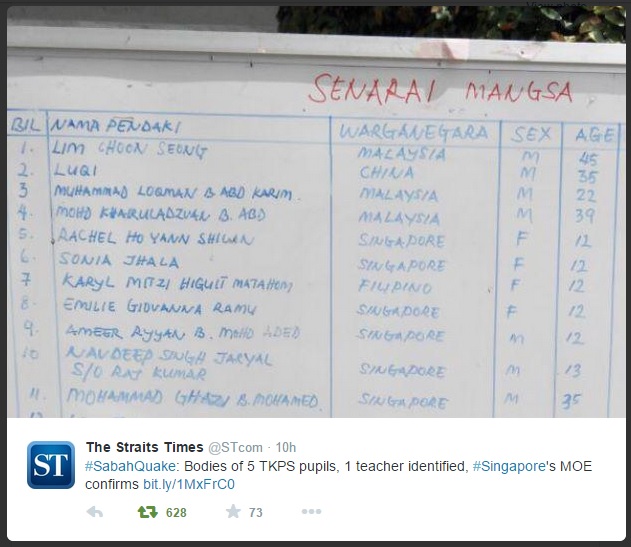 SENARAI MANGSA
BIL NAMA PENDAKI WARGANEGARA SEX AGE
1. LIM CHOON SEONG MALAYSIA M 45
2. LUQI CHINA M 35
3 MUHAMMAD LOQMAN B ABD KARIM. MALAYSIA M 22
4. MOHD KHAIRULADZUAN B. ABD MALAYSIA M 39
5. RACHEL HO YANN SHIUAN SINGAPORE F 12
6. SONIA JHALA SINGAPORE F 12
7 KARYL MITZI HIGUIT MATAHOM FILIPINO F 12
8. EMILIE GIOVANNA RAMU SINGAPORE F 12
9. AMEER RYYAN B. MOHD ADED SINGAPORE M 12
10 NAVDEEP SINGH JARYAL
S/O RAJ KUMAR SINGAPORE M 13
11. MOHAMMAD GHAZI B. MOHAMED. SINGAPORE M 35
The Straits Times @STcom · 10h
#SabahQuake: Bodies of 5 TKPS pupils, 1 teacher identified, #Singapore's MOE
confirms bit.ly/1MxFrC0
628 73